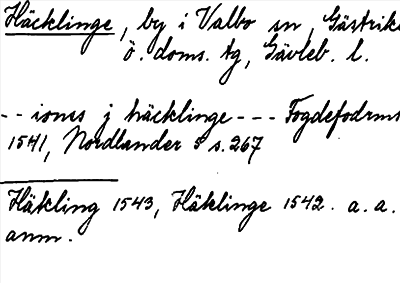 Häcklinge, by i Valbo sn, Gästrikl
ö. doms. tg, Gävleb. l.
-- ionss j häcklinge --- Fogdefodrms
1541, Nordlander 5 s. 267
Häkling 1543, Häklinge 1542. a. a.
anm.